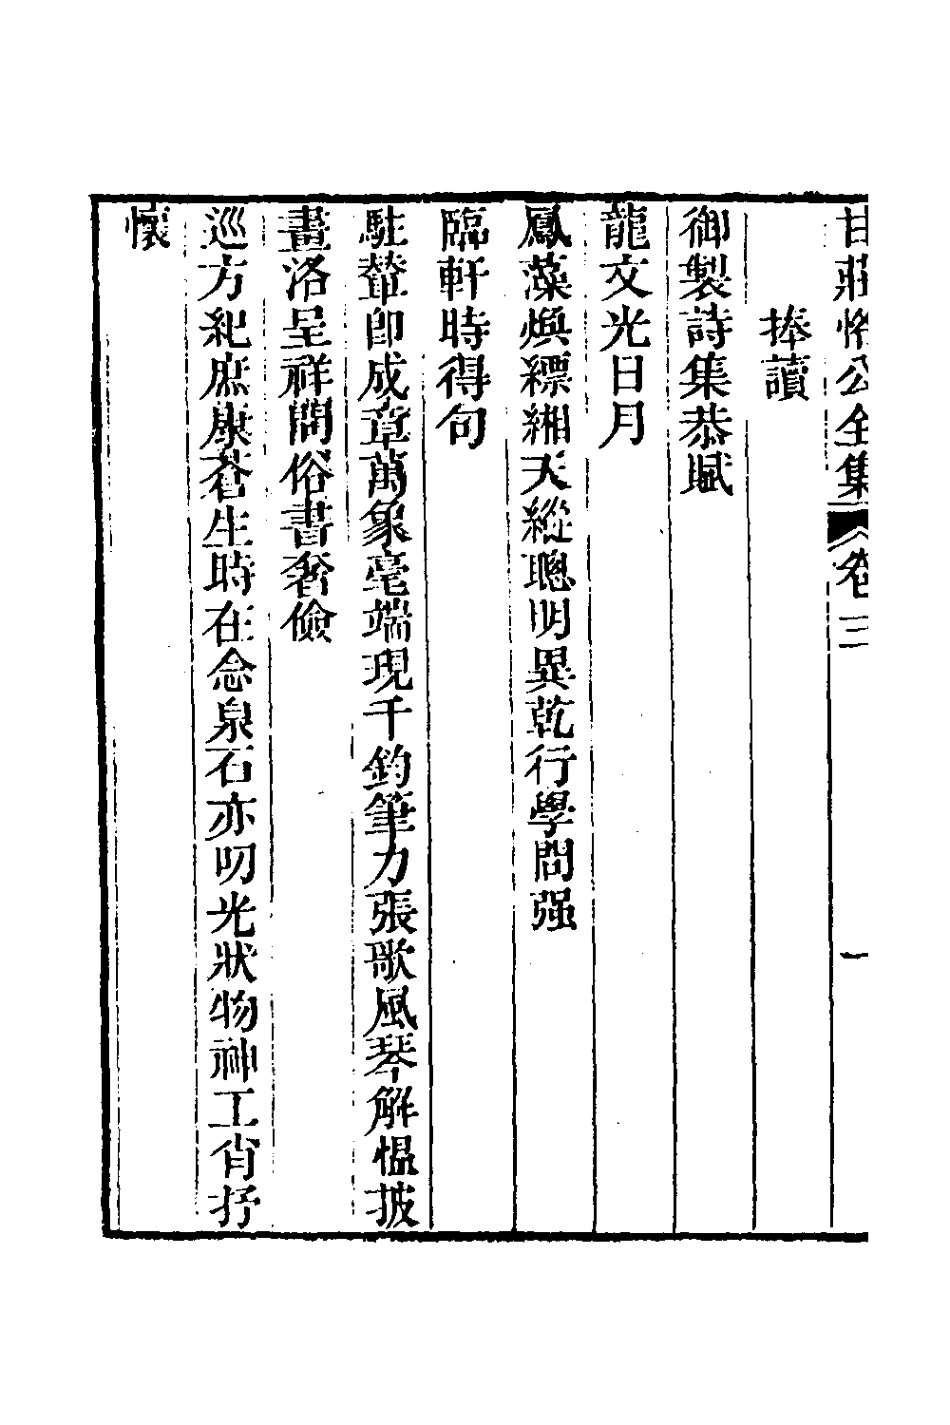 甘莊恪公全集 卷三 一
捧讀
御製詩集恭賦
龍文光日月
鳳藻煥縹緗天縱聰明異乾行學問强
臨軒時得句
駐輦卽成章萬象毫端現千鈞筆力張歌風琴解慍披
畫洛呈祥問俗書奢儉
巡方紀庶康蒼生時在念泉石亦叨光狀物神工肖抒
懷